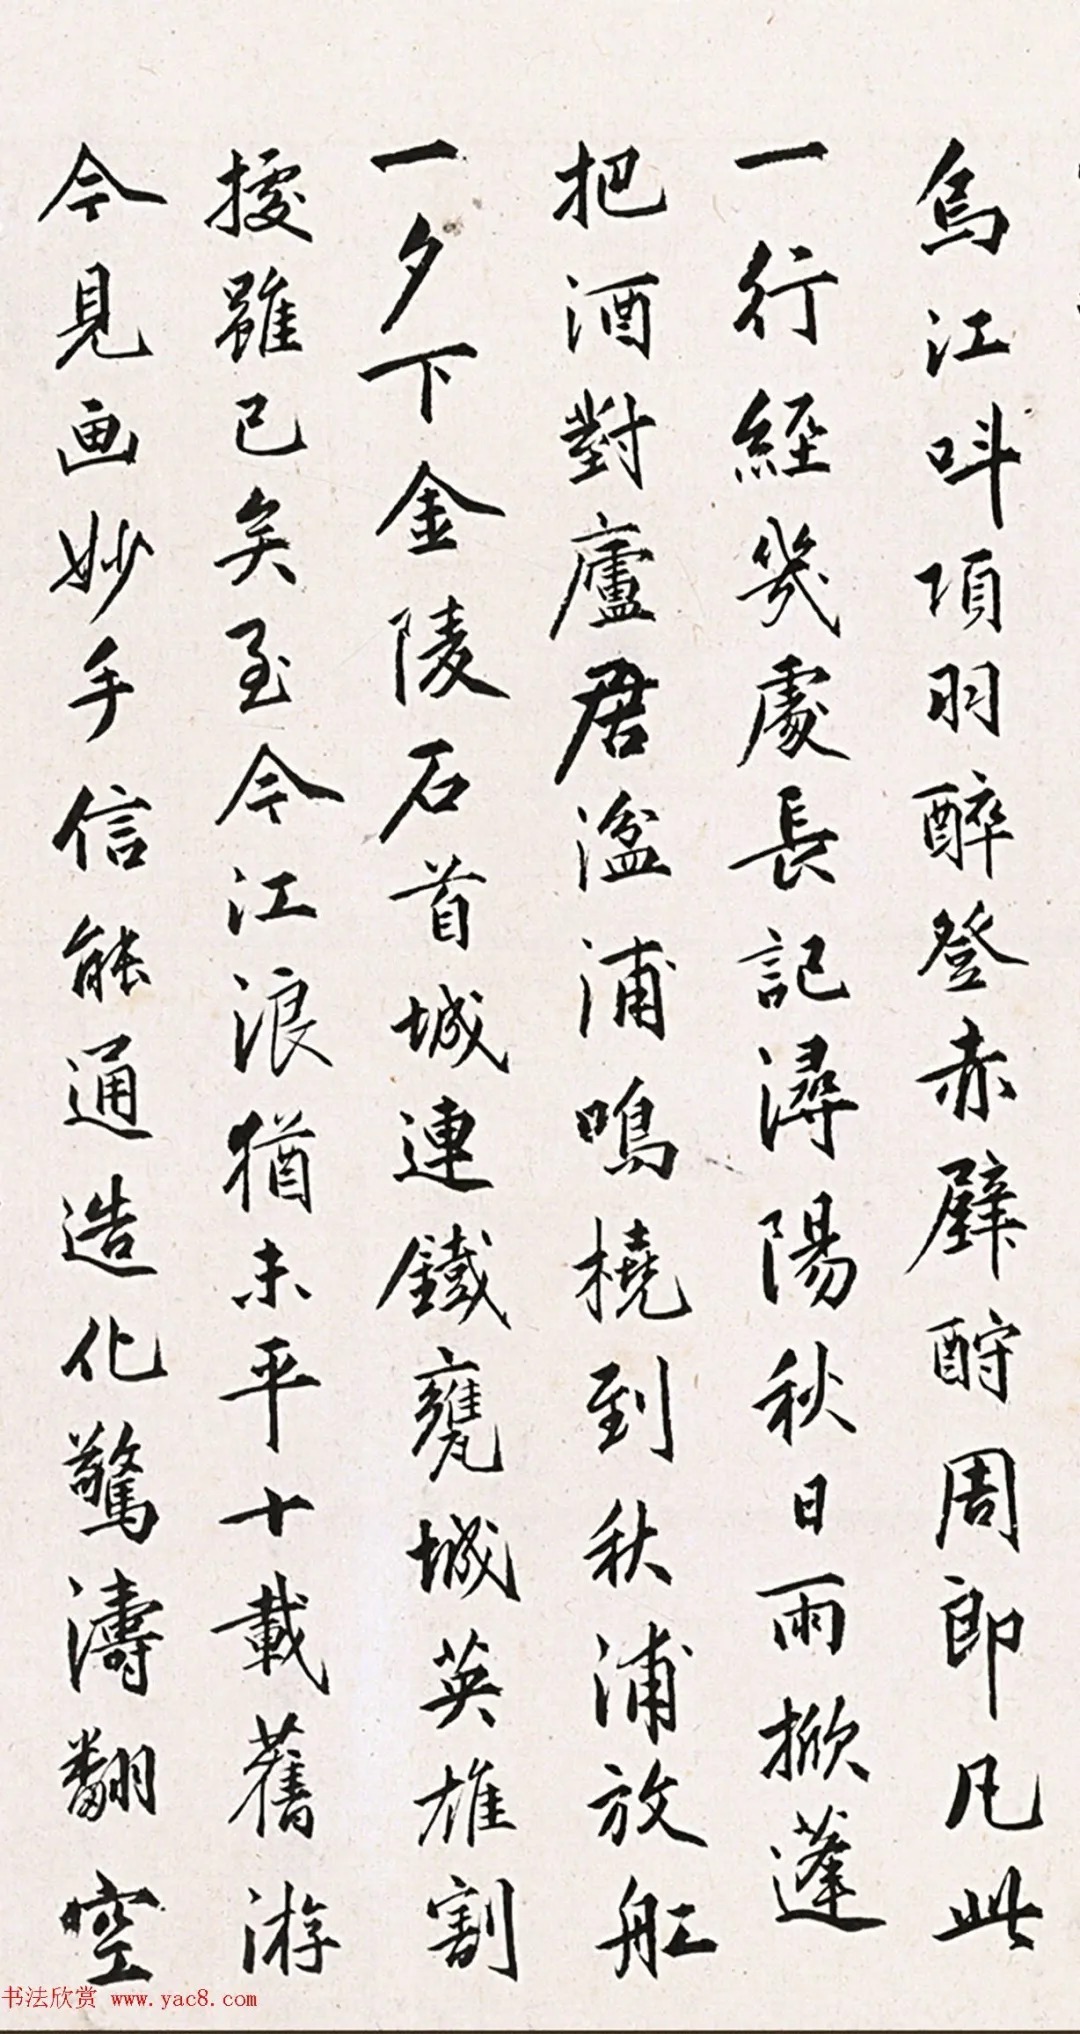 烏江叫項羽醉登赤壁酹周郎凡此
一行經幾處長記潯陽秋日雨掀蓬
把酒對廬君湓浦鳴橈到秋浦放舡
一夕下金陵石首城連鐵甕城英雄割
據雖已矣至今江浪猶未平十載舊游
今見画妙手信能通造化驚濤翻空
书法欣赏 www.yac8.com